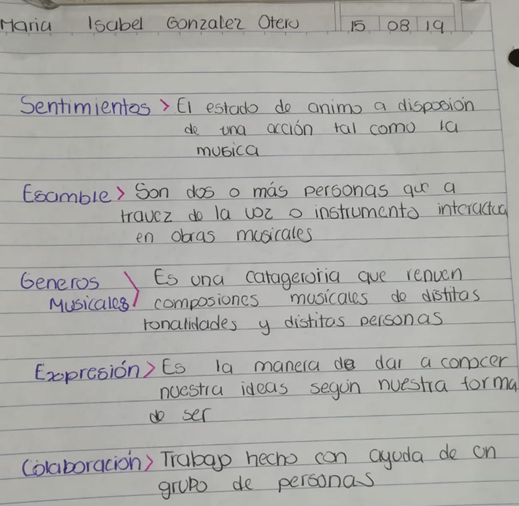 Maria Isabel Gonzalez Otero 15 08 19
Sentimientos > El estado de animo a disposion
de una acción tal como la
musica
Esamble > Son dos o más personas que a
travez de la voz o instrumento interactua
en obras musicales
Generos > Es una catageroria que renuen
Musicales composiones musicales de distitas
tonalidades y distitas personas
Expresión > Es la manera de dar a conocer
nuestra ideas según nuestra forma
de ser
Colaboración > Trabajo hecho con ayuda de un
grupo de personas